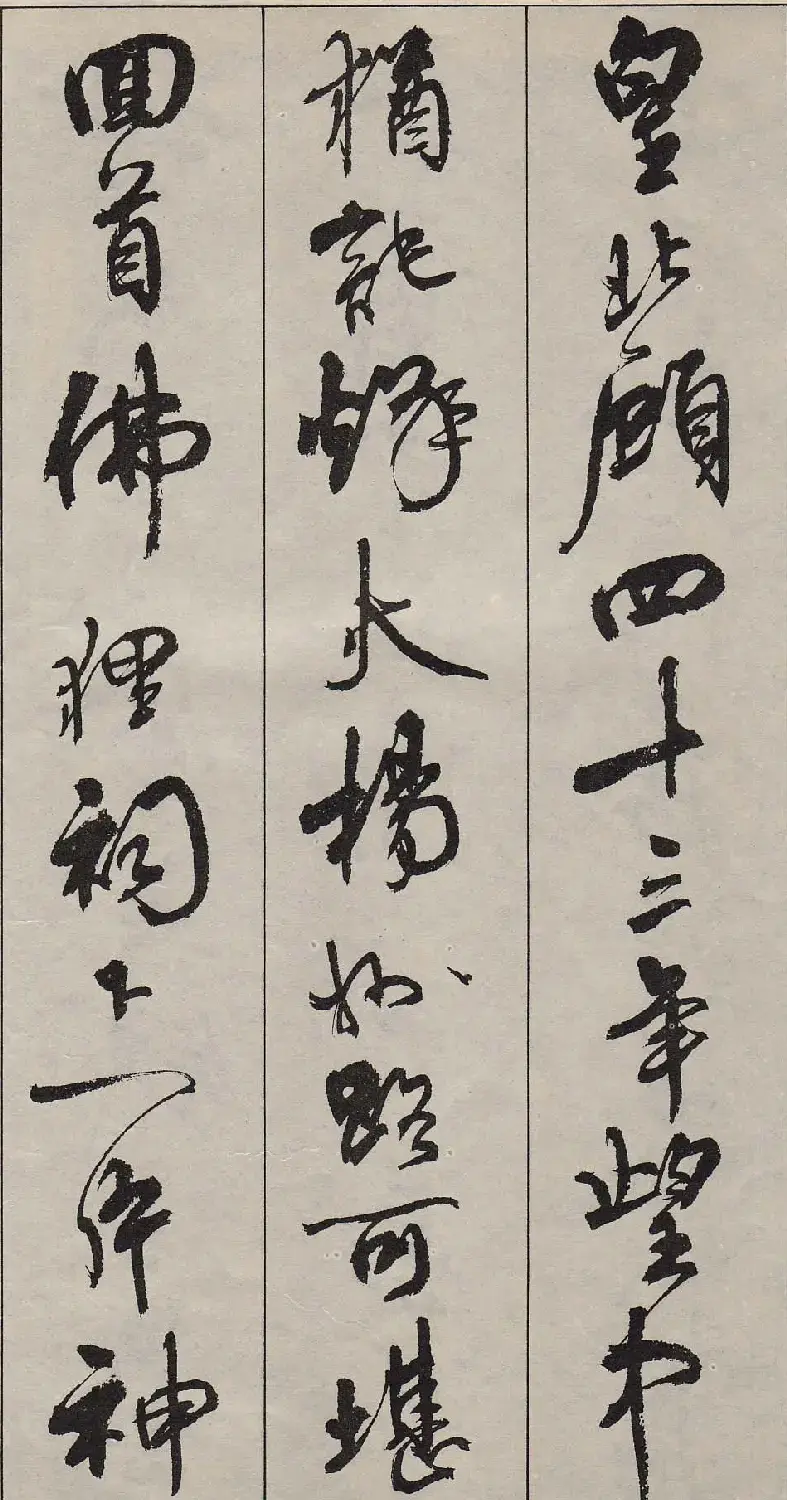 皇北顧四十三年望中
猶記烽火揚州路可堪
回首佛狸祠下一片神